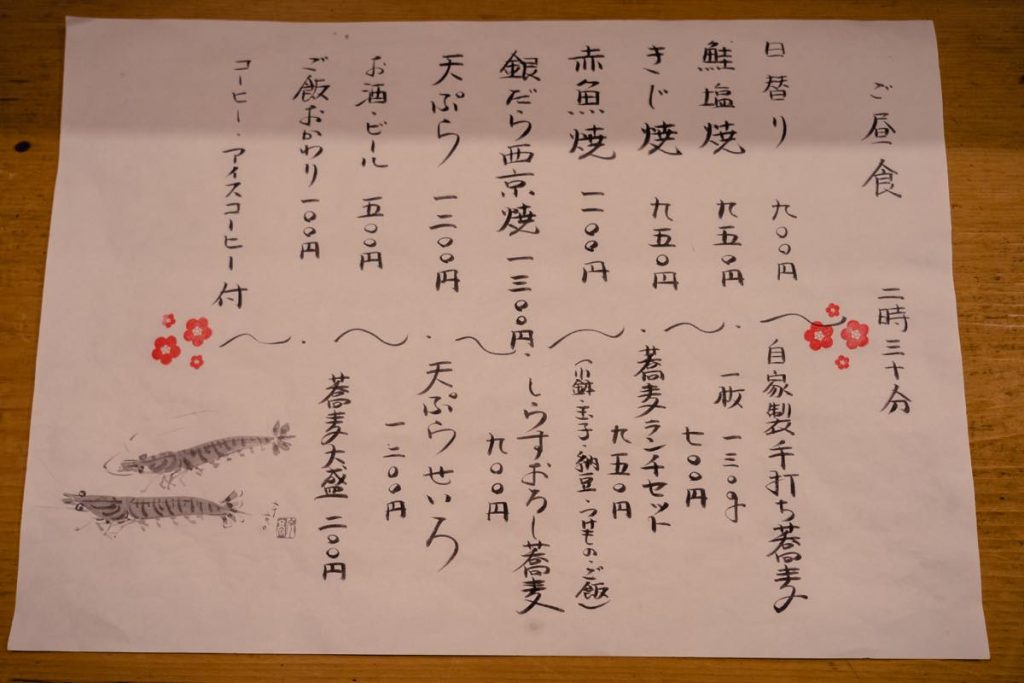 ご昼食 二時三十分
日替り 九〇〇円
鮭塩焼 九五〇円
きじ焼 九五〇円
赤魚焼 一一〇〇円
銀だら西京焼 一三〇〇円
天ぷら 一二〇〇円
お酒・ビール 五〇〇円
ご飯おかわり 一〇〇円
コーヒー・アイスコーヒー付
自家製手打ち蕎麦
一枚 一三〇g
七〇〇円
蕎麦ランチセット
九五〇円
(小鉢・玉子・納豆・つけもの・ご飯)
しらすおろし蕎麦
九〇〇円
天ぷらせいろ
一三〇〇円
蕎麦大盛 二〇〇円